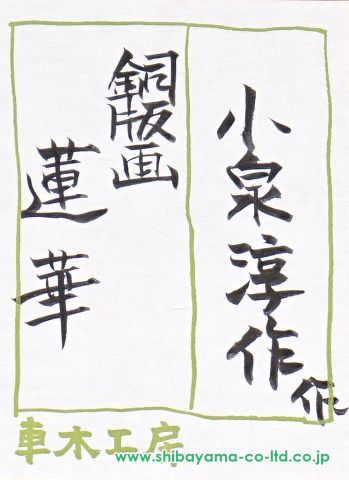 小泉淳作作
銅版画
蓮華
車木工房
www.shibayama-co-ltd.co.jp